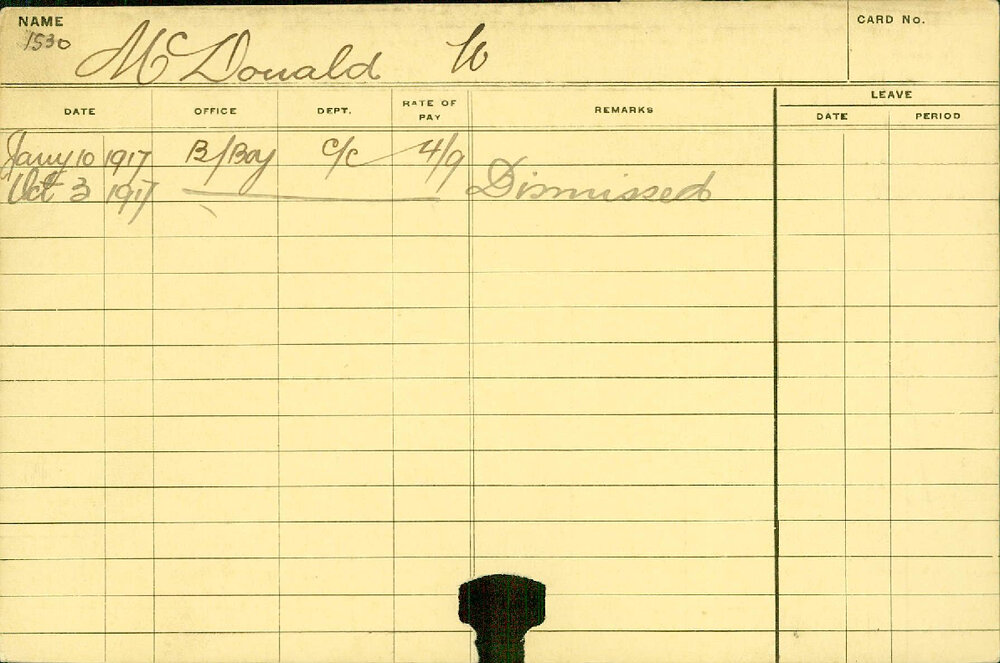 NAME CARD No.
1530
McDonald W
DATE OFFICE DEPT. RATE OF PAY REMARKS LEAVE
DATE PERIOD
Jany 10 1917 B/Boy C/C 4/9
Oct 3 1917 Dismissed